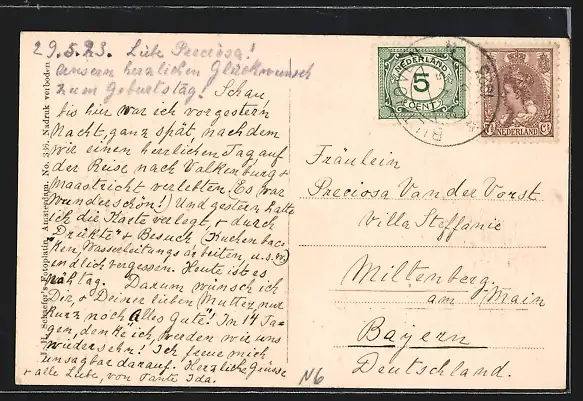 29.5.23. Liebe Preciosa!
unsern herzlichen Glückwunsch
zum Geburtstag. Schau
bis hier war ich vorgestern
Nacht, ganz spät, nachdem
wir einen herrlichen Tag auf
der Reise nach Valkenburg &
Maastricht verlebten. (Es war
Wunderschön!) Und gestern hatte
ich die Karte verlegt, & durch
"Drükte" & Besuch, Kuchenbac=
ken, Wasserleitungsarbeiten, u.s.w.
endlich vergessen. Heute ist es
nähtag. Darum wünsch ich
Dir & Deiner lieben Mutter nur
kurz noch alles Gute! In 14 Ta=
gen, denke ich, werden wir uns
wiedersehn! Ich freue mich
unsagbar darauf. Herzliche Grüsse
& alle Liebe, von Tante Ida.
Schaefer's Fotoplatin, Amsterdam. No. Nadruk verboden
NEDERLAND
5
CENT
NEDERLAND
Fräulein
Preciosa Van der Vorst
Villa Steffanie
Miltenberg
am Main
Bayern
Deutschland.
N6